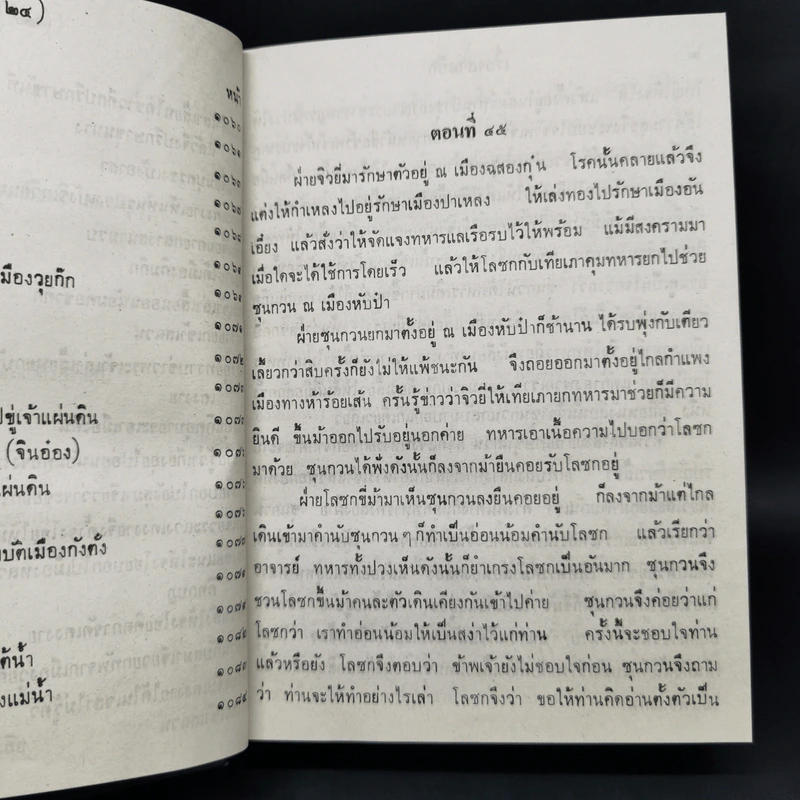 ๒๔)
หน้า
๑๐๖๐
๑๐๖๑
๑๐๖
๑๐๖
๑๐๖
๑๐๖
มืองวุยก๊ก
๑๐๗
๑๐๗
๑๐๗
ปขู่เจ้าแผ่นดิน
๑๐๗
(จินอ๋อง)
๑๐๗
ผ่นดิน
๑๐๗
บบดีเมืองกังตั๋ง
๑๐๗
๑๐๗
๑๐๘
ต้น้ำ
๑๐๘
งแม่น้ำ
๑๐๘
ตอนที่ ๔๕
ฝ่ายจิวยี่มารักษาตัวอยู่ ณ เมืองฉสองกุ๋น โรคนั้นคลายแล้วจึง
แต่งให้กำเหลงไปอยู่รักษาเมืองปาเหลง ให้เล่งทองไปรักษาเมืองฮัน
เอี๋ยง แล้วสั่งว่าให้จัดแจงทหารแลเรือรบไว้ให้พร้อม แม้มีสงครามมา
เมื่อใดจะได้ใช้การโดยเร็ว แล้วให้โลซกกับเทียเภาคุมทหารยกไปช่วย
ซุนกวน ณ เมืองหับป๋า
ฝ่ายซุนกวนยกมาตั้งอยู่ ณ เมืองหับป๋าก็ช้านาน ได้รบพุ่งกับเตียว
เลี้ยวกว่าสิบครั้งก็ยังไม่ให้แพ้ชนะกัน จึงถอยออกมาตั้งอยู่ไกลกำแพง
เมืองทางห้าร้อยเส้น ครั้นรู้ข่าวว่าจิวยี่ให้เทียเภายกทหารมาช่วยก็มีความ
ยินดี ขึ้นม้าออกไปรับอยู่นอกค่าย ทหารเอาเนื้อความไปบอกว่าโลซก
มาด้วย ซุนกวนได้ฟังดังนั้นก็ลงจากม้ายืนคอยรับโลซกอยู่
ฝ่ายโลซกขี่ม้ามาเห็นซุนกวนลงยืนคอยอยู่ ก็ลงจากม้าแต่ไกล
เดินเข้ามาคำนับซุนกวน ๆ ก็ทำเป็นอ่อนน้อมคำนับโลซก แล้วเรียกว่า
อาจารย์ ทหารทั้งปวงเห็นดังนั้นก็ยำเกรงโลซกเป็นอันมาก ซุนกวนจึง
ชวนโลซกขึ้นม้าคนละตัวเดินเคียงกันเข้าไปค่าย ซุนกวนจึงค่อยว่าแก่
โลซกว่า เราทำอ่อนน้อมให้เป็นสง่าไว้แก่ท่าน ครั้งนี้จะชอบใจท่าน
แล้วหรือยัง โลซกจึงตอบว่า ข้าพเจ้ายังไม่ชอบใจก่อน ซุนกวนจึงถาม
ว่า ท่านจะให้ทำอย่างไรเล่า โลซกจึงว่า ขอให้ท่านคิดอ่านตั้งตัวเป็น